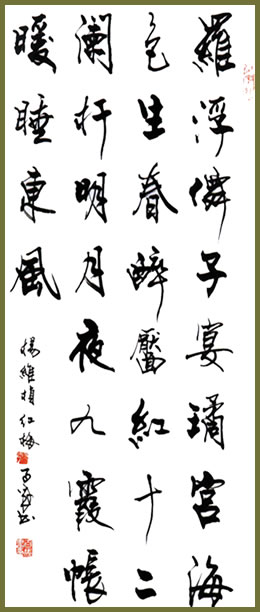 羅浮僊子宴璚宮海
色生春醉靨紅十二
闌杆明月夜九霞帳
暖睡東風
楊維楨紅梅